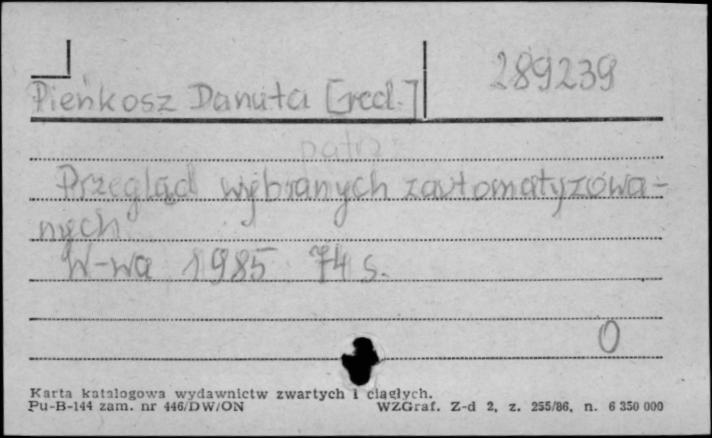 289239
Pieńkosz Danuta [red.]
patrz
Przegląd wybranych zautomatyzowa-
nych
W-wa 1985 74 s.
0
Karta katalogowa wydawnictw zwartych i ciągłych.
Pu-B-144 zam. nr 446/DW/ON WZGraf. Z-d 2, z. 255/86, n. 6 350 000